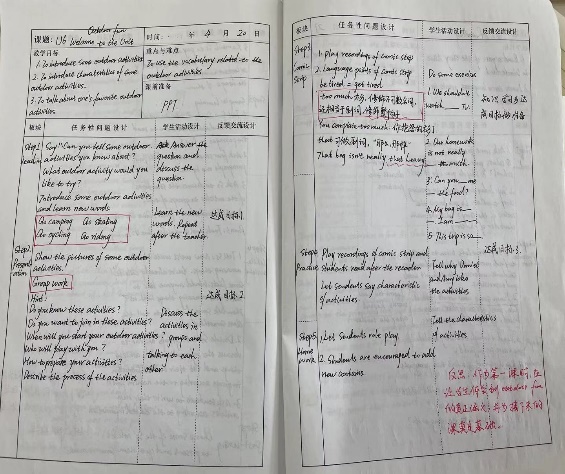 Outdoor fun
课题: U6 Welcome to the Unit
时间: 年 4 月 20 日
教学目标
1. To introduce some outdoor activities
2. To introduce characteristics of some
outdoor activities.
3. To talk about one's favorite outdoor
activities
重点与难点
To use the vocabulary related to the
outdoor activities
课前准备
PPT
板块 任务性问题设计 学生活动设计 反馈交流设计
Step1
Say: "Can you tell some outdoor
activities you know about?
What outdoor activity would you
like to try?
Introduce some outdoor activities
and learn new words
Go camping Go skating
Go cycling Go riding
Answer the
question and
discuss the
question.
Learn the new
words. Repeat
after the teacher
达成目标1
Step2
Show the pictures of some outdoor
activities.
Group work
Hint:
Do you know these activities?
Do you want to join in these activities?
When will you start your outdoor activities?
Who will play with you?
How to prepare your activities?
Describe the process of the activities
Discuss the
activities in
groups and
talking to each
other
达成目标2
板块 任务性问题设计 学生活动设计 反馈交流设计
Step3
Comic
Strip
1. Play recordings of comic strip
2. Language points of comic strip
be tired = get tired
too much 太多, 修饰不可数名词,
You complain too much.
that 可做副词,
That bag isn't really that heavy
Do some exercise
1. We shouldn't
watch ___ TV.
2. The homework
is not really
3. Can you ___ me
___ the food?
4. My bag is ___
I am ___
5. This trip is so
Step4
Practice
Play recordings of comic strip and
students read after the recorder.
Let students say characteristic
of activities
Tell why
and Amy like
the activities
Tell the characteristics
of activities
达成目标3.
Step5
Home
work
1. Let Students role play
2. Students are encouraged to add
new contents
反思: 作为第一课时, 应
让学生体会到 outdoor fun
的真正涵义, 并为接下来的
课奠定基础.